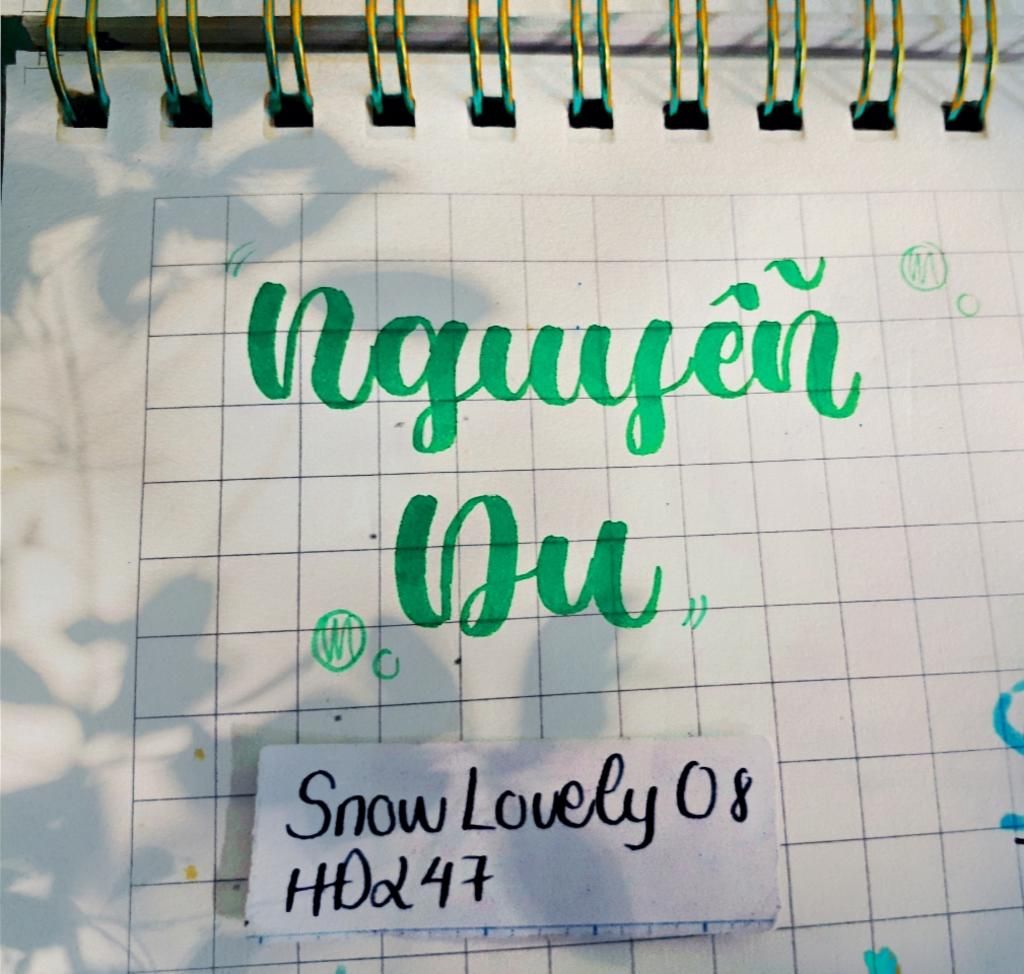 "Nguyễn
Du"
Snow Lovely 08
HD247